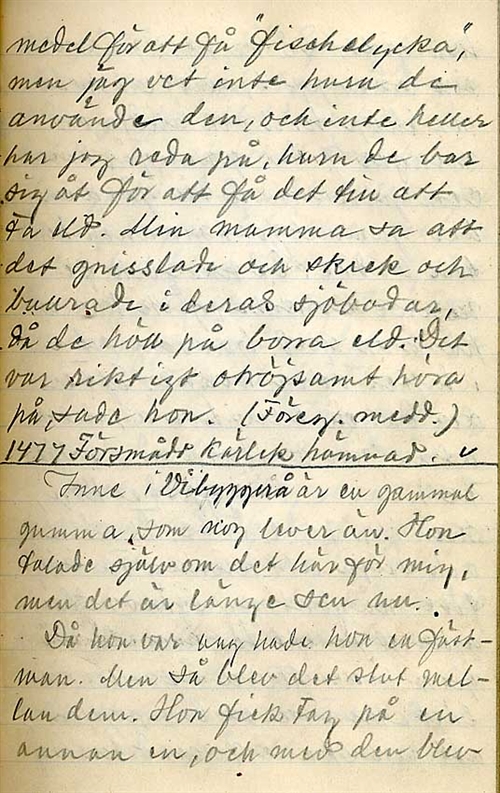 medel för att få "fiskelycka",
men jag vet inte huru de
använde den, och inte heller
har jag reda på, huru de bar
sig åt för att få det till att
ta eld. Min mamma sa att
det gnisslade och skrek och
buurade i deras sjöbodar,
då de höll på borra eld. Det
var riktigt otröjsamt höra
på, sade hon. (Föreg. medd.)
1477 Försmådd kärlek hämnad. v
Inne i Vibyggerå är en gammal
gumma, som nog lever än. Hon
talade själv om det här för mig,
men det är länge sen nu.
Då hon var ung hade hon en fäst-
man. Men så blev det slut mel-
lan dem. Hon fick tag på en
annan en, och med den blev